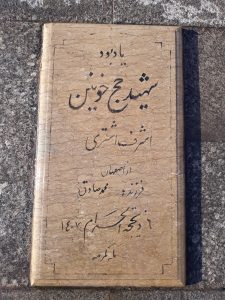 یادبود
شهید حج خونین
اشرف اشتری
از اصفهان
فرزند محمدصادق
۶ ذیحجة الحرام ۱۴۰۷
مکه مکرمه